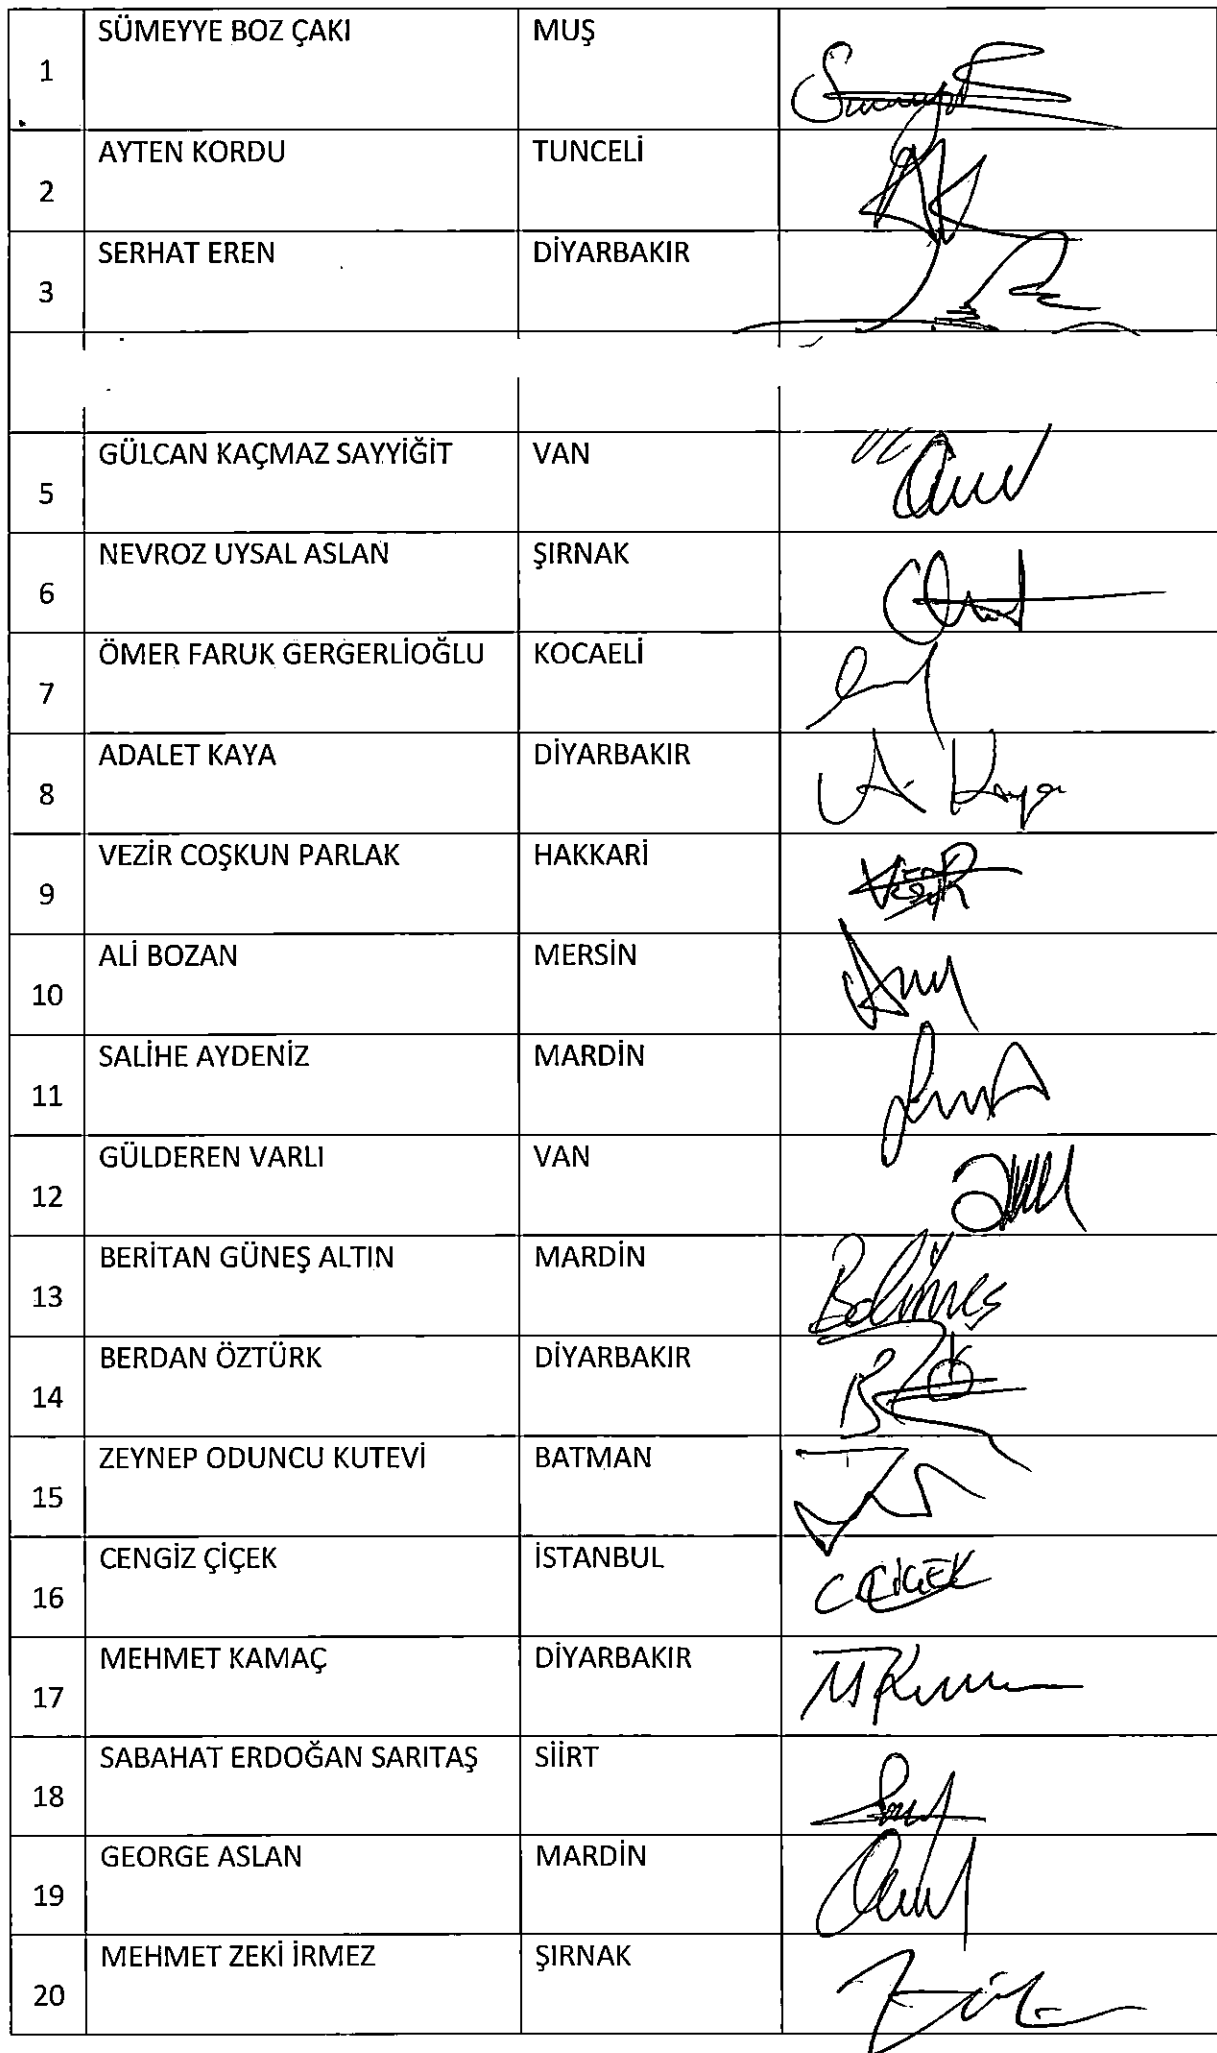 1 SÜMEYYE BOZ ÇAKI MUŞ
2 AYTEN KORDU TUNCELİ
3 SERHAT EREN DİYARBAKIR
5 GÜLCAN KAÇMAZ SAYYİĞİT VAN
6 NEVROZ UYSAL ASLAN ŞIRNAK
7 ÖMER FARUK GERGERLİOĞLU KOCAELİ
8 ADALET KAYA DİYARBAKIR A. Kaya
9 VEZİR COŞKUN PARLAK HAKKARİ
10 ALİ BOZAN MERSİN
11 SALİHE AYDENİZ MARDİN
12 GÜLDEREN VARLI VAN
13 BERİTAN GÜNEŞ ALTIN MARDİN
14 BERDAN ÖZTÜRK DİYARBAKIR
15 ZEYNEP ODUNCU KUTEVİ BATMAN
16 CENGİZ ÇİÇEK İSTANBUL C.ÇİÇEK
17 MEHMET KAMAÇ DİYARBAKIR
18 SABAHAT ERDOĞAN SARITAŞ SİİRT
19 GEORGE ASLAN MARDİN
20 MEHMET ZEKİ İRMEZ ŞIRNAK